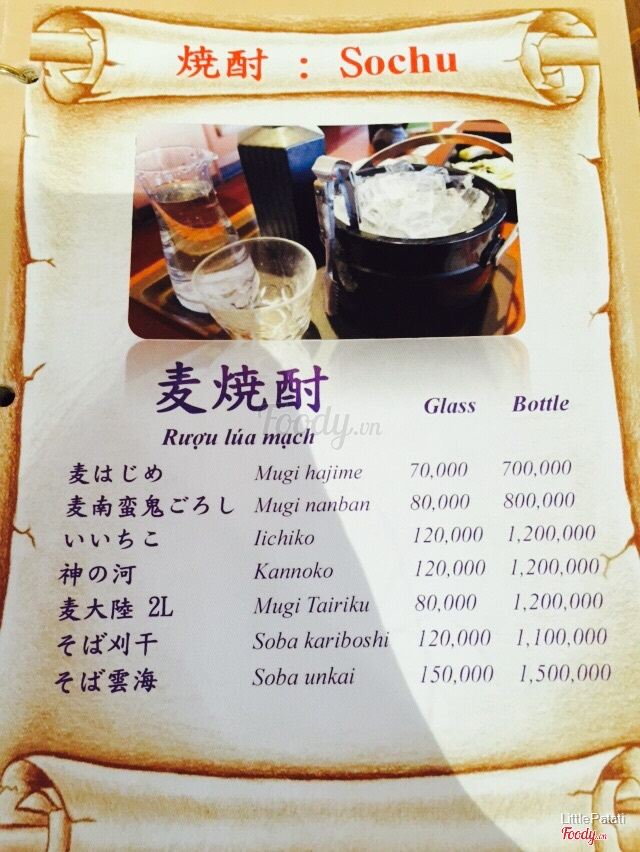 焼酎 : Sochu
麦焼酎 Glass Bottle
Rượu lúa mạch
麦はじめ Mugi hajime 70,000 700,000
麦南蛮鬼ごろし Mugi nanban 80,000 800,000
いいちこ Iichiko 120,000 1,200,000
神の河 Kannoko 120,000 1,200,000
麦大陸 2L Mugi Tairiku 80,000 1,200,000
そば刈干 Soba kariboshi 120,000 1,100,000
そば雲海 Soba unkai 150,000 1,500,000
Foody.vn
LittlePateti
Foody.vn